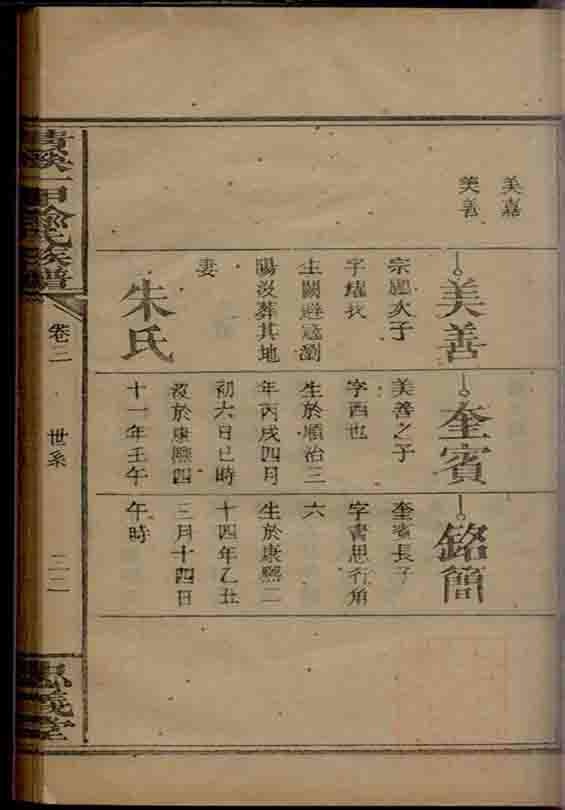 美嘉
美善
美善
宗鳳次子
字繼我
生闕避寇瀏
陽沒葬其地
妻
朱氏
奎賓
美善之子
字西也
生於順治三
年丙戌四月
初六日巳時
沒於康熙四
十一年壬午
銘簡
奎賓長子
字書思行角
六
生於康熙二
十四年乙丑
三月十四日
午時
甲俞氏族譜
卷二
世系
二二
忠義堂